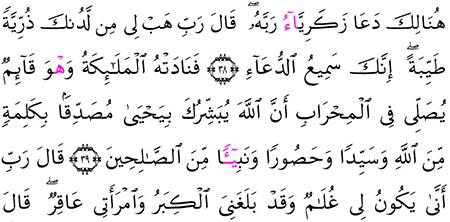 هُنَالِكَ دَعَا زَكَرِيَّآءُ رَبَّهُۥۖ قَالَ رَبِّ هَبْ لِى مِن لَّدُنكَ ذُرِّيَّةٗ
طَيِّبَةًۖ إِنَّكَ سَمِيعُ ٱلدُّعَآءِ ٣٨ فَنَادَتْهُ ٱلْمَلَٰٓئِكَةُ وَهْوَ قَآئِمٞ
يُصَلِّى فِى ٱلْمِحْرَابِ أَنَّ ٱللَّهَ يُبَشِّرُكَ بِيَحْيَىٰ مُصَدِّقَۢا بِكَلِمَةٖ
مِّنَ ٱللَّهِ وَسَيِّدٗا وَحَصُورٗا وَنَبِيٓـٔٗا مِّنَ ٱلصَّٰلِحِينَ ٣٩ قَالَ رَبِّ
أَنَّىٰ يَكُونُ لِى غُلَٰمٞ وَقَدْ بَلَغَنِىَ ٱلْكِبَرُ وَٱمْرَأَتِى عَاقِرٞۖ قَالَ